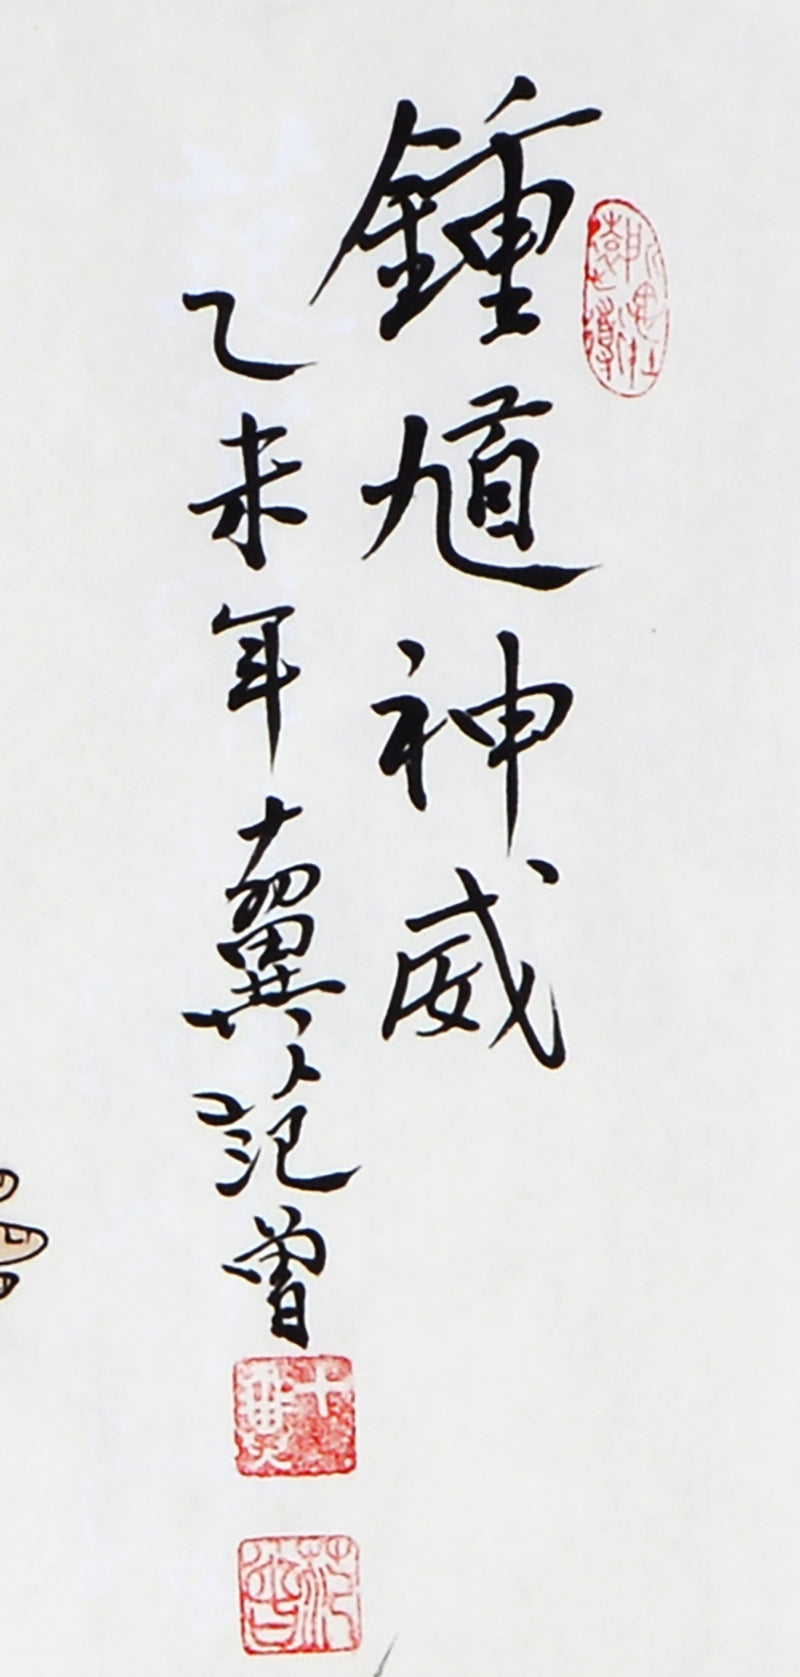 鍾馗神威
乙未年十翼范曾
十翼
范曾